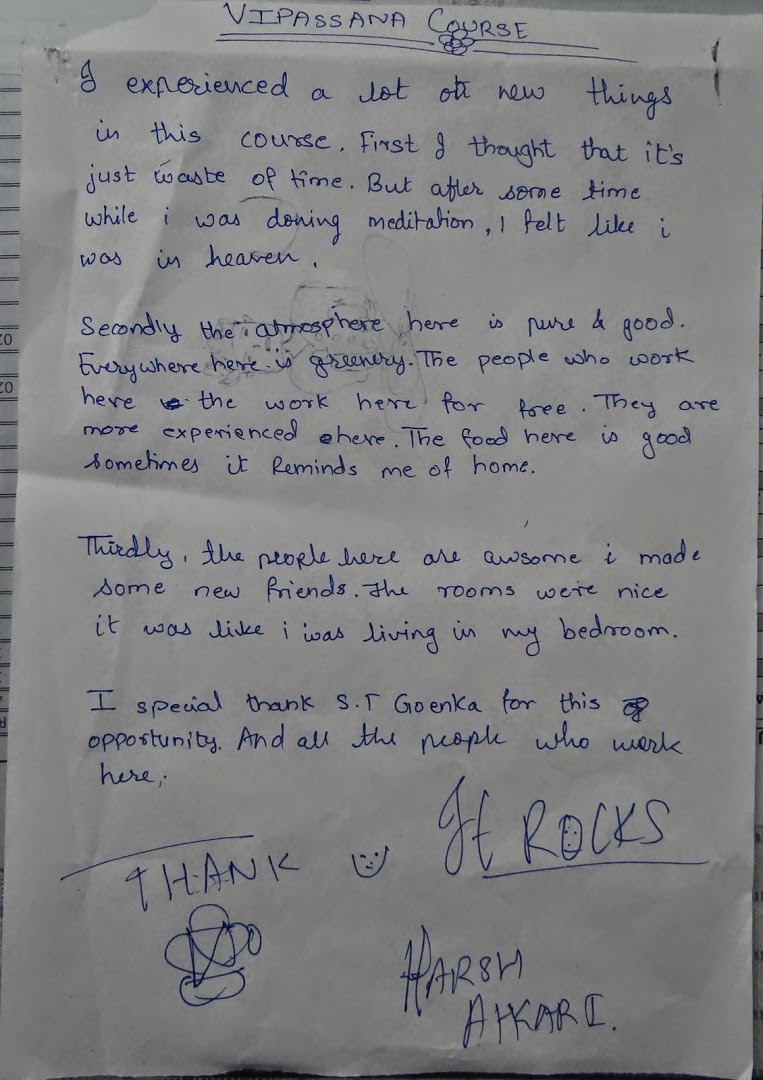 VIPASSANA COURSE
I experienced a lot of new things
in this course. First I thought that it's
just waste of time. But after some time
while i was doning meditation, I felt like i
was in heaven.
Secondly the atmosphere here is pure & good.
Everywhere here is greenery. The people who work
here the work here for free. They are
more experienced here. The food here is good
sometimes it Reminds me of home.
Thirdly, the people here are awsome i made
some new friends. The rooms were nice
it was like i was living in my bedroom.
I special thank S.T Goenka for this
opportunity. And all the people who work
here,.
It ROCKS
THANK
HARSH
ATKARI.